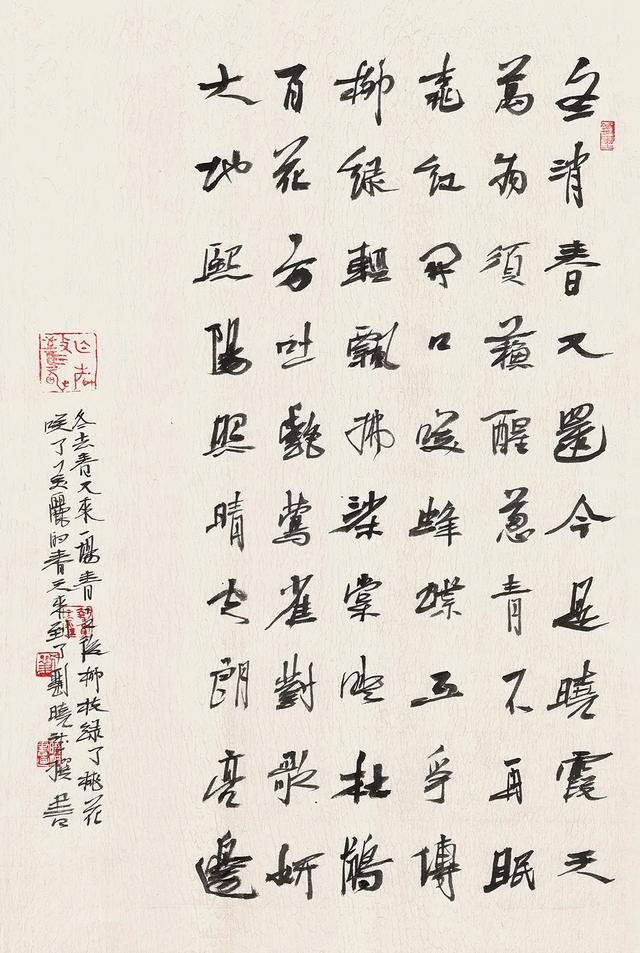 冬消春又還今是曉霞天
萬物須蘇醒蔥青不再眠
桃紅開口笑蜂蝶互爭傳
柳綠輕飄拂棠映杜鵑
百花方吐艷鶯雀對歌妍
大地熙陽照晴空朗亮邊
冬去春又來一場春之後柳枝綠了桃花
笑了美麗的春天來到了劉曉撰書